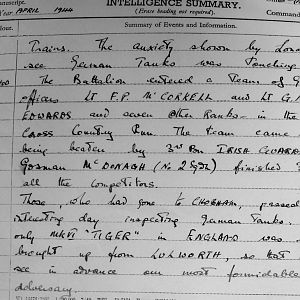 INTELLIGENCE SUMMARY.
Year APRIL 1944
(Erase heading not required).
Hour
Summary of Events and Information.
Commandi
Trains. The anxiety shown by Lon
see German Tanks was touching
The Battalion entered a Team of
officers Lt F.P. McCORKELL and Lt G.
EDWARDS and seven other Ranks in the
CROSS Country Run. The team came
being beaten by 3rd Bn IRISH GUARD
Gdsman McDONAGH (No 2 Sqdn) finished
all the Competitors.
Those, who had gone to CHOBHAM, passed
interesting day inspecting German Tanks.
only MKVI "TIGER" in ENGLAND was
brought up from LULWORTH, so that
see in advance our most formidable
adversary.